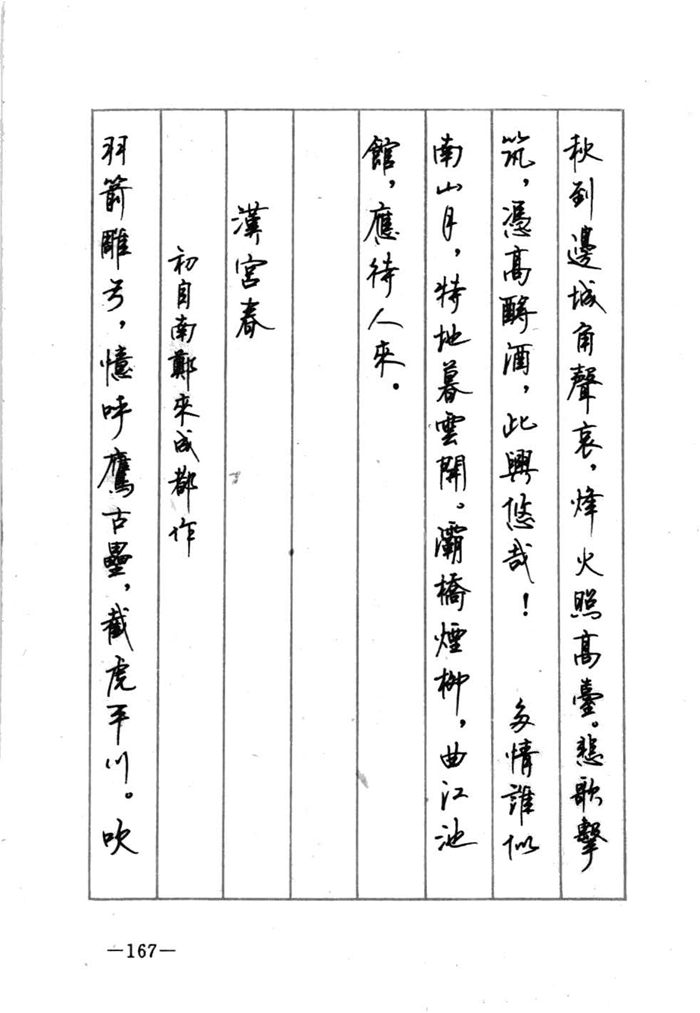 秋到邊城角聲哀，烽火照高臺。悲歌擊
筑，憑高酹酒，此興悠哉！　多情誰似
南山月，特地暮雲開。灞橋煙柳，曲江池
館，應待人來。
漢宮春
初自南鄭來成都作
羽箭雕弓，憶呼鷹古壘，截虎平川。吹
—167—